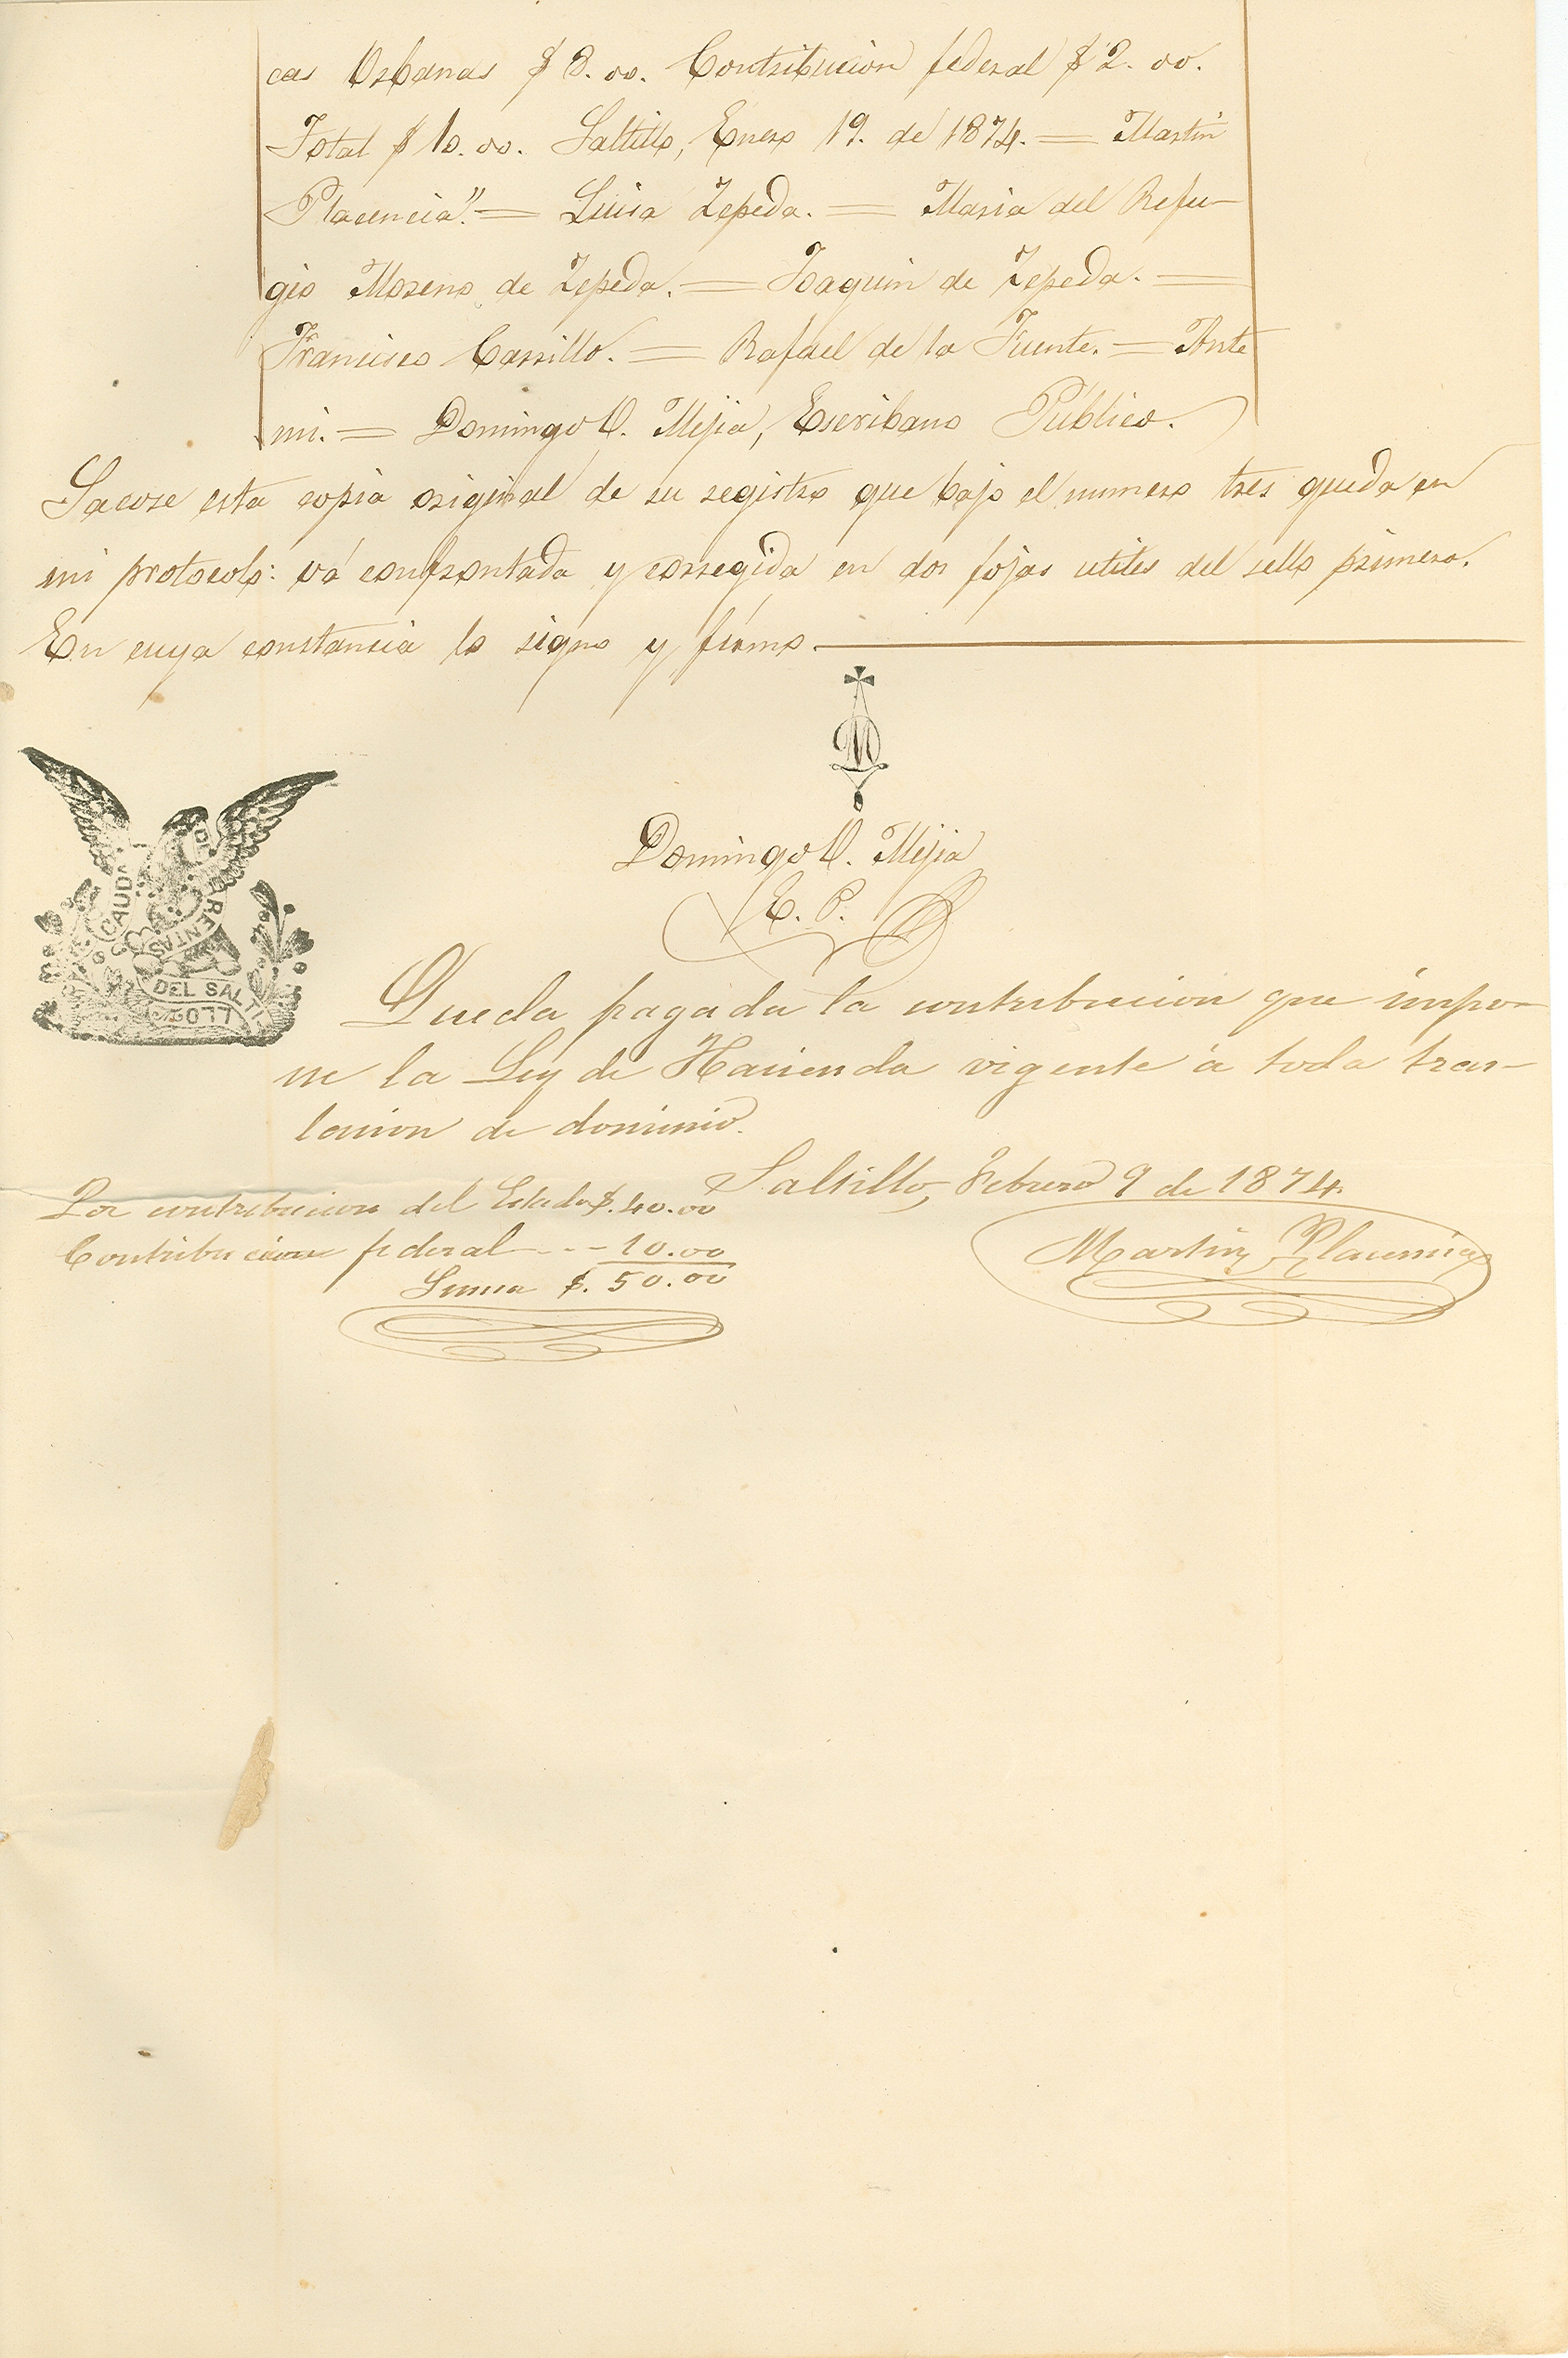 cas Urbanas $ 8. oo. Contribucion federal $ 2. oo.
Total $ 10. oo. Saltillo, Enero 19. de 1874. = Martin
Placencia". = Luisa Zepeda. = Maria del Refu-
gio Moreno de Zepeda. = Joaquin de Zepeda. =
Francisco Carrillo. = Rafael de la Fuente. = Ante
mi. = Domingo V. Mejia, Escribano Público.
Sacose esta copia original de su registro que bajo el numero tres queda en
mi protocolo: vá confrontada y corregida en dos fojas utiles del sello primero.
En cuya constancia lo signo y firmo.
Domingo V. Mejia
E. P.
RECAUDON DE RENTAS
DEL SALTILLO
Queda pagada la contribucion que impo-
ne la Ley de Hacienda vigente á toda tras-
lacion de dominio.
Saltillo, Febrero 9 de 1874.
Por contribucion del Estado $. 40.00
Contribucion federal - - - 10.00
Suma $. 50.00
Martin Placencia